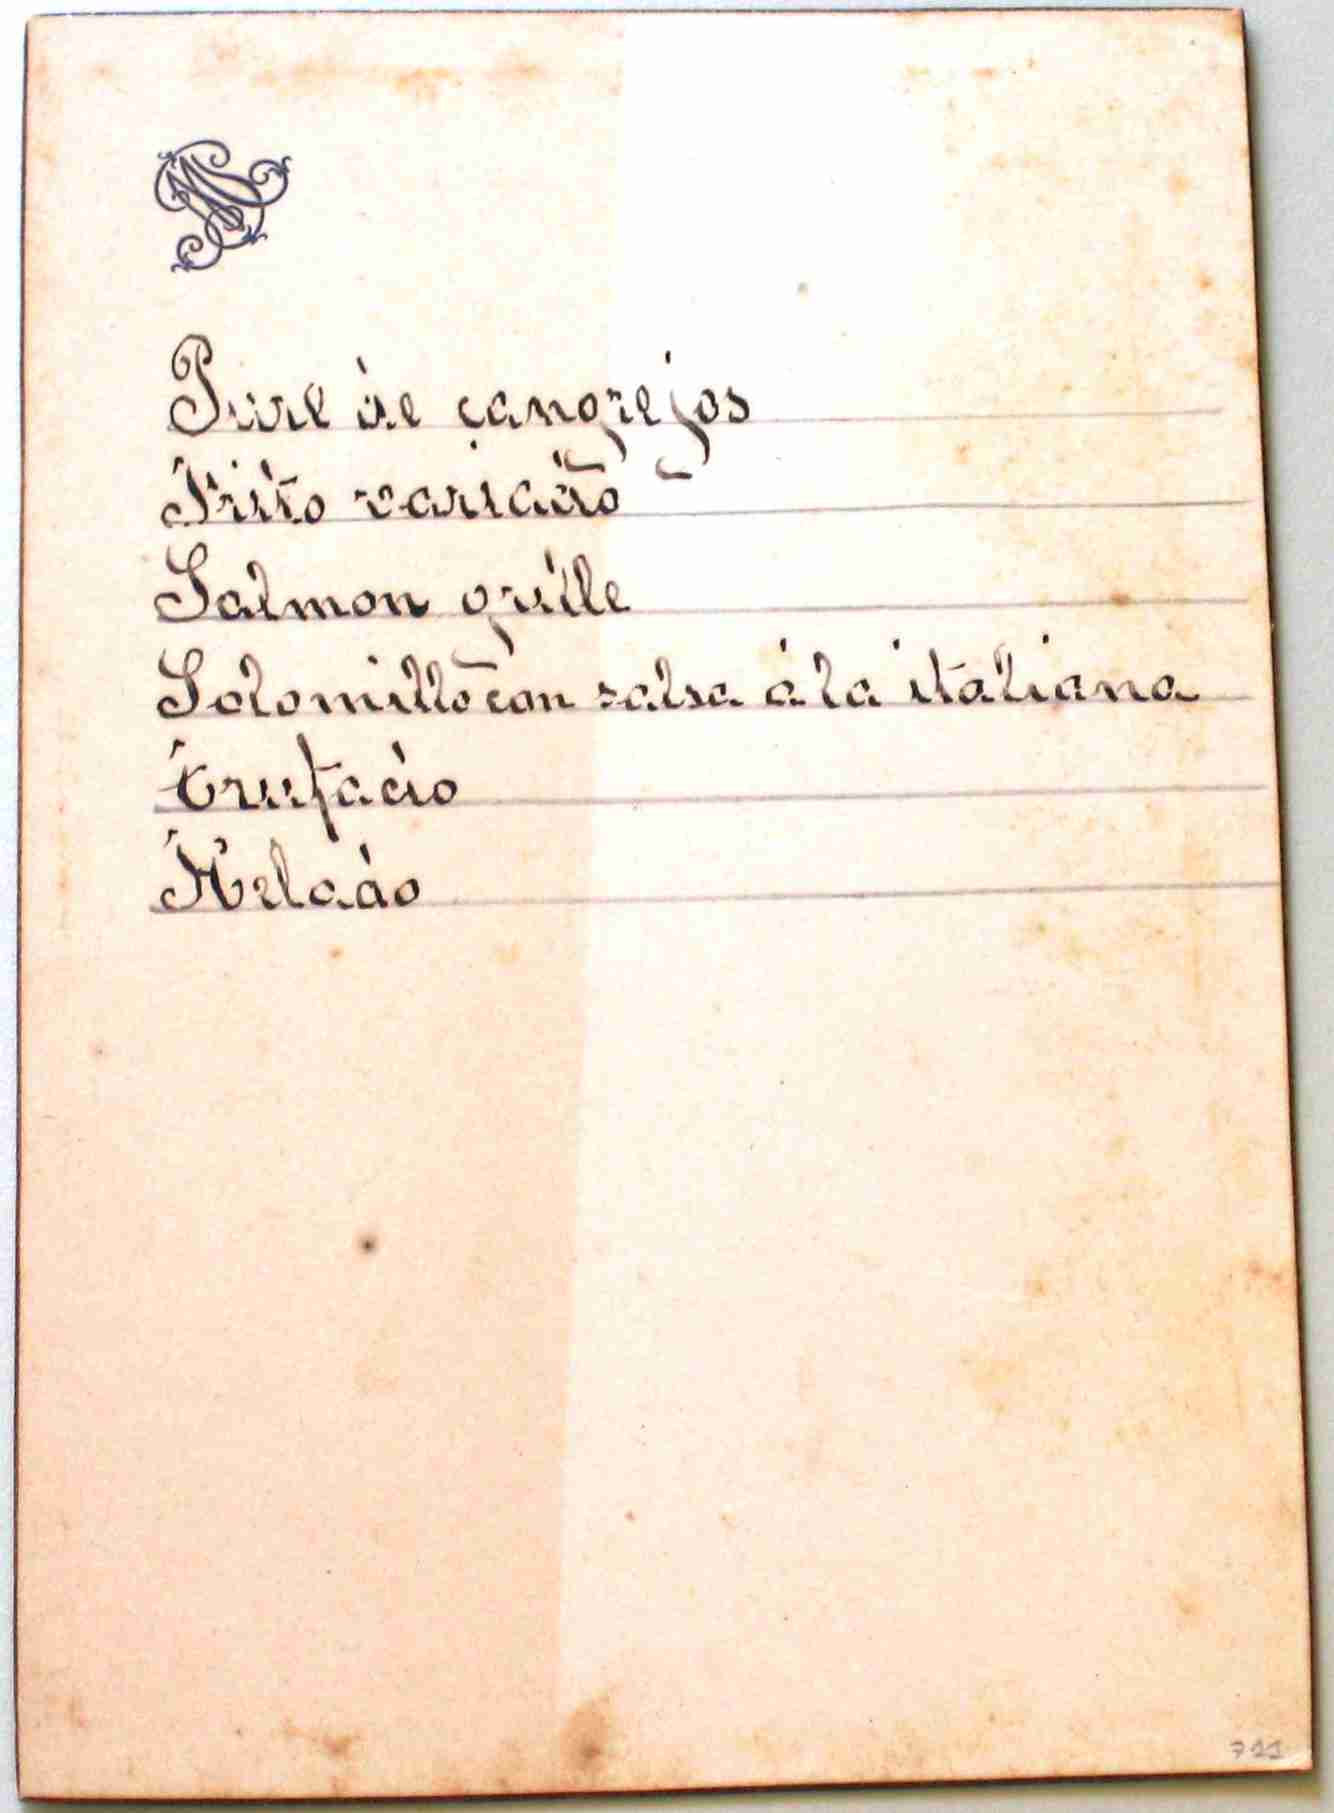 Pure de cangrejos
Frito variado
Salmon grille
Solomillo con salsa á la italiana
trufado
Helado
711